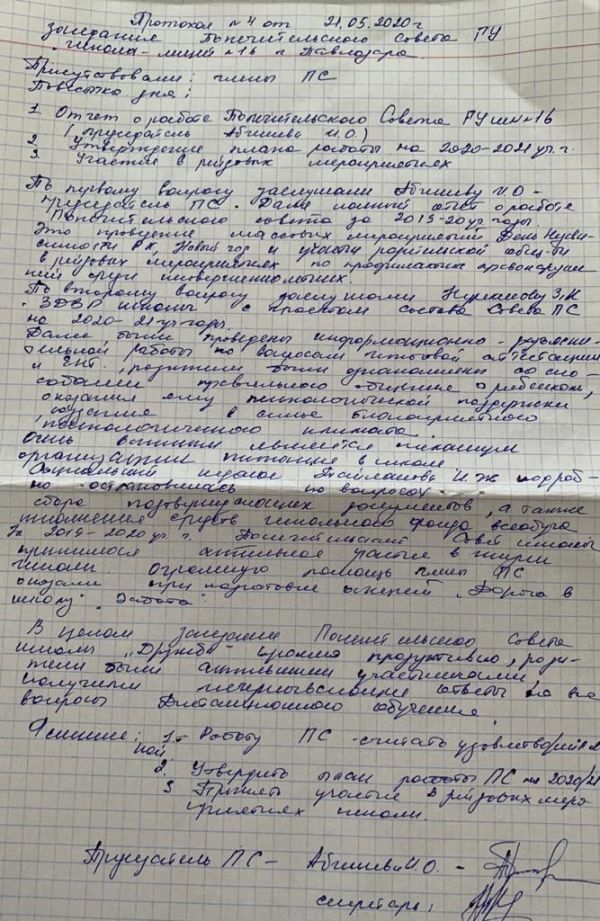 Протокол №4 от 21.05.2020г
заседания Попечительского Совета ГУ
школа-лицей №16 г Павлодара.
Присутствовали: члены ПС
Повестка дня:
1. Отчет о работе Попечительского Совета ГУ №16
(председатель Абишева И.О.)
2. Утверждение плана работы на 2020-2021 уч. г.
3. Участие в рейдовых мероприятиях
По первому вопросу заслушали Абишеву И.О -
председатель ПС. Дала полный отчет о работе
Попечительского совета за 2019-20 уч. годы.
Это проведение массовых мероприятий День Незави-
симости РК, Новый год и участи родительской общ-ти
в рейдовых мероприятиях по профилактике правонаруше
ний среди несовершеннолетних.
По второму вопросу заслушали
ЗДВР школы с проектом состава Совета ПС
на 2020-21 уч годы.
Далее были проведены информационно-разъясни-
тельной работы по вопросам итоговой аттестации
и ЕНТ, родители были ознакомлены со спо-
собами правильного общения с ребенком,
оказания ему психологической поддержки
, создания в семье благоприятного
психологичного климата.
Очень важным является
организации питания в школе
Социальный педагог И.Ж подроб-
но остановилась по вопросам
сбора подтверждающих документов, а также
средств школьного фонда всеобуча
2019-2020 уч. г. Попечительский Совет школы
активное участие в жизни
школы. Огромную помощь члены ПС
оказали при подготовке акцией "Дорога в
школу", "Забота"
В целом заседание Попечительского Совета
школы "Дружба" прошла продуктивно, роди-
тели были активными участниками,
получили исчерпывающие ответы на все
вопросы Дистанционного обучения.
Решение: 1. Работу ПС - считать удовлетворител
ной.
2. Утвердить план работы ПС на 2020/21
3 Принять участие в рейдовых меро
приятиях школы.
Председатель ПС - Абишева И.О. -
секретарь: